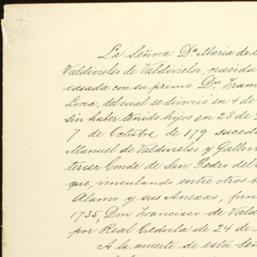 La Señora Dª Maria de l
Valdivelso de Valdivelso, nacida
casada con su primo Dn. Fran
Loria, del cual se divorció en 4 de
sin haber tenido hijos en 28 de
7 de Octubre de 179 suced
Manuel de Valdivelso y Gallo
tercer Conde de San Pedro del
que, vinculando entre otros
Alamo y sus Anexas, fun
1735, Don Francisco de Vald
por Real Cedula de 24 de
A la muerte de esta Señ